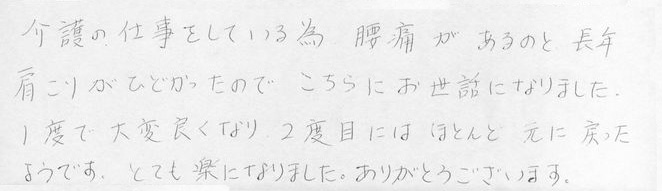 介護の仕事をしている為 腰痛があるのと長年
肩こりがひどかったのでこちらにお世話になりました.
1度で大変良くなり.2度目にはほとんど元に戻った
ようです.とても楽になりました。ありがとうございます。